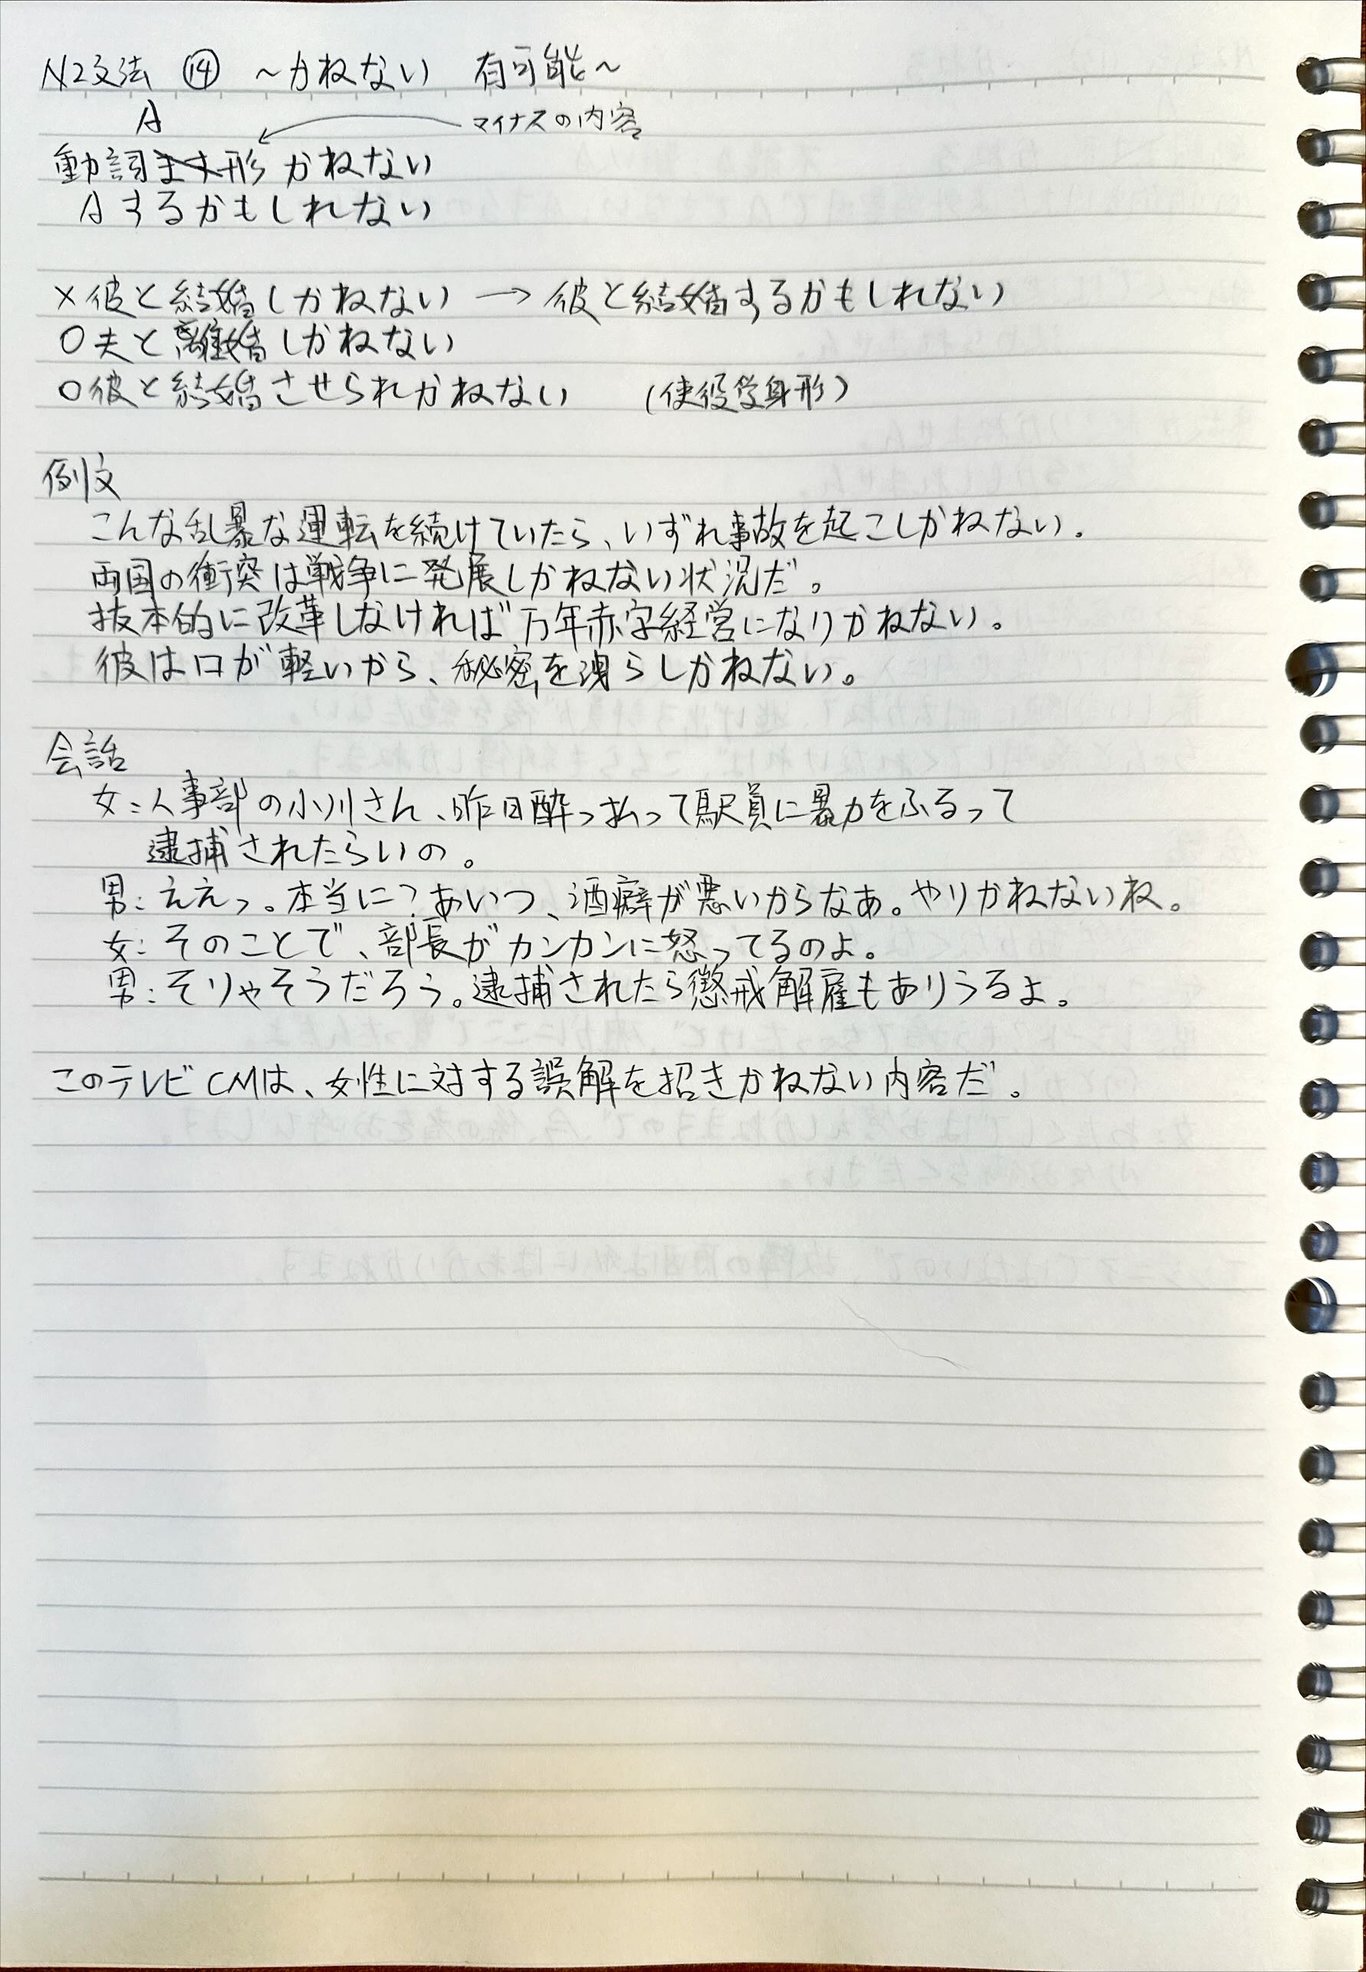 N2文法 ⑭ ～かねない 有可能～
A
マイナスの内容
動詞ます形 かねない
Aするかもしれない
×彼と結婚しかねない → 彼と結婚するかもしれない
○夫と離婚しかねない
○彼と結婚させられかねない (使役受身形)
例文
こんな乱暴な運転を続けていたら、いずれ事故を起こしかねない。
両国の衝突は戦争に発展しかねない状況だ。
抜本的に改革しなければ万年赤字経営になりかねない。
彼は口が軽いから、秘密を洩らしかねない。
会話
女：人事部の小川さん、昨日酔っ払って駅員に暴力をふるって
逮捕されたらいの。
男：ええっ。本当に？あいつ、酒癖が悪いからなあ。やりかねないね。
女：そのことで、部長がカンカンに怒ってるのよ。
男：そりゃそうだろう。逮捕されたら懲戒解雇もありうるよ。
このテレビCMは、女性に対する誤解を招きかねない内容だ。